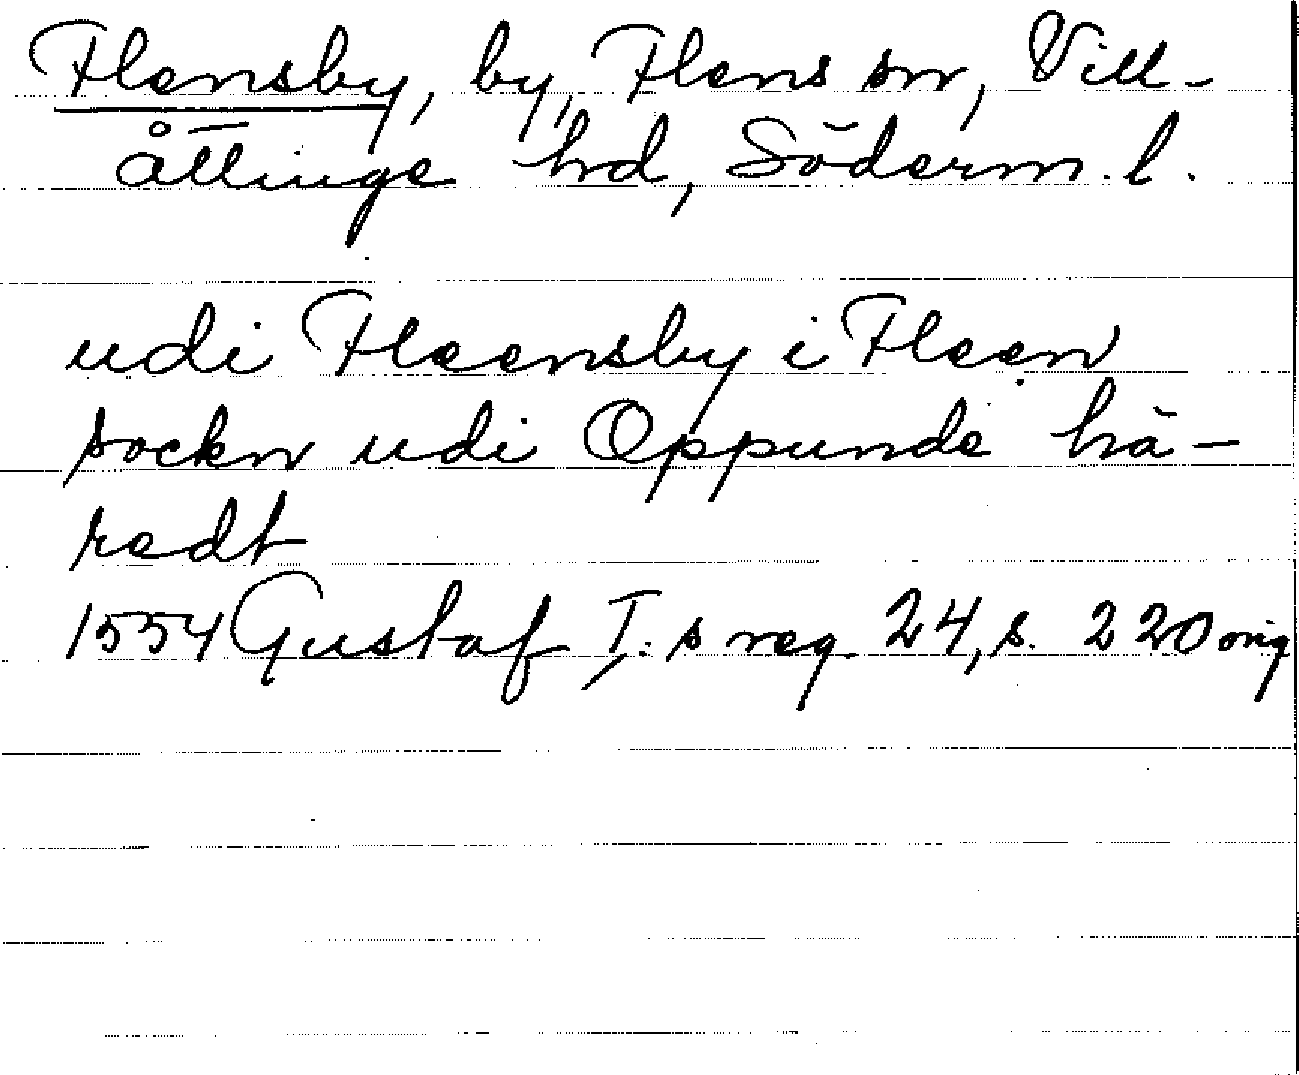 Flensby, by, Flens sn, Vill-
åttinge hd, Söderm. l.
udi Fleensby i Fleen
sockn udi Oppunde hä-
redt
1554 Gustaf I:s reg. 24, s. 220 orig